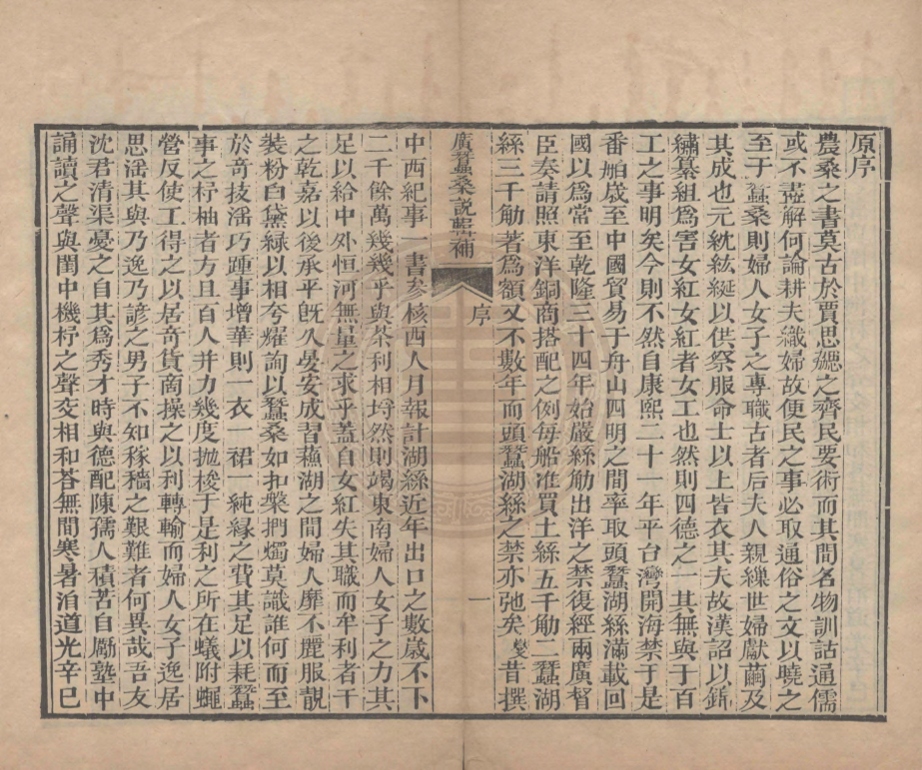 原序
農桑之書莫古於賈思勰之齊民要術而其間名物訓詁通儒
或不盡解何論耕夫織婦故使民之事必取通俗之文以曉之
至于蠶桑則婦人女子之專職古者后夫人親繅世婦獻繭及
其成也元紞紘綖以供祭服命士以上皆衣其夫故漢詔以錦
繡纂組爲害女紅女紅者女工也然則四德之一其無與于百
工之事明矣今則不然自康熙二十一年平台灣開海禁于是
番舶歲至中國貿易于舟山四明之間率取頭蠶湖絲滿載回
國以爲當至乾隆三十四年始嚴絲觔出洋之禁復經兩廣督
臣奏請照東洋銅商搭配之例每船准買土絲五千觔二蠶湖
絲三千觔著爲額又不數年而頭蠶湖絲之禁亦弛矣 昔撰
廣蠶桑說輯補
序
一
中西紀事一書參核西人月報計湖絲近年出口之數歲不下
二千餘萬幾幾乎與茶利相埒然則竭東南婦人女子之力其
足以給中外恒河無量之求乎蓋自女紅失其職而牟利者干
之乾嘉以後承平旣久晏安成習蘓湖之間婦人靡不麗服靚
裝粉白黛緑以相夸耀詢以蠶桑如扣槃捫燭莫識誰何而至
於奇技滛巧踵事增華則一衣一裙一純緣之費其足以耗蠶
事之杼柚者方且百人并力幾度抛梭于是利之所在蟻附蠅
營反使工得之以居奇貨商操之以利轉輸而婦人女子逸居
思滛其與乃逸乃諺之男子不知稼穡之艱難者何異哉吾友
沈君清渠憂之自其爲秀才時與德配陳孺人積苦自勵塾中
誦讀之聲與閨中機杼之聲交相和荅無間寒暑洎道光辛巳